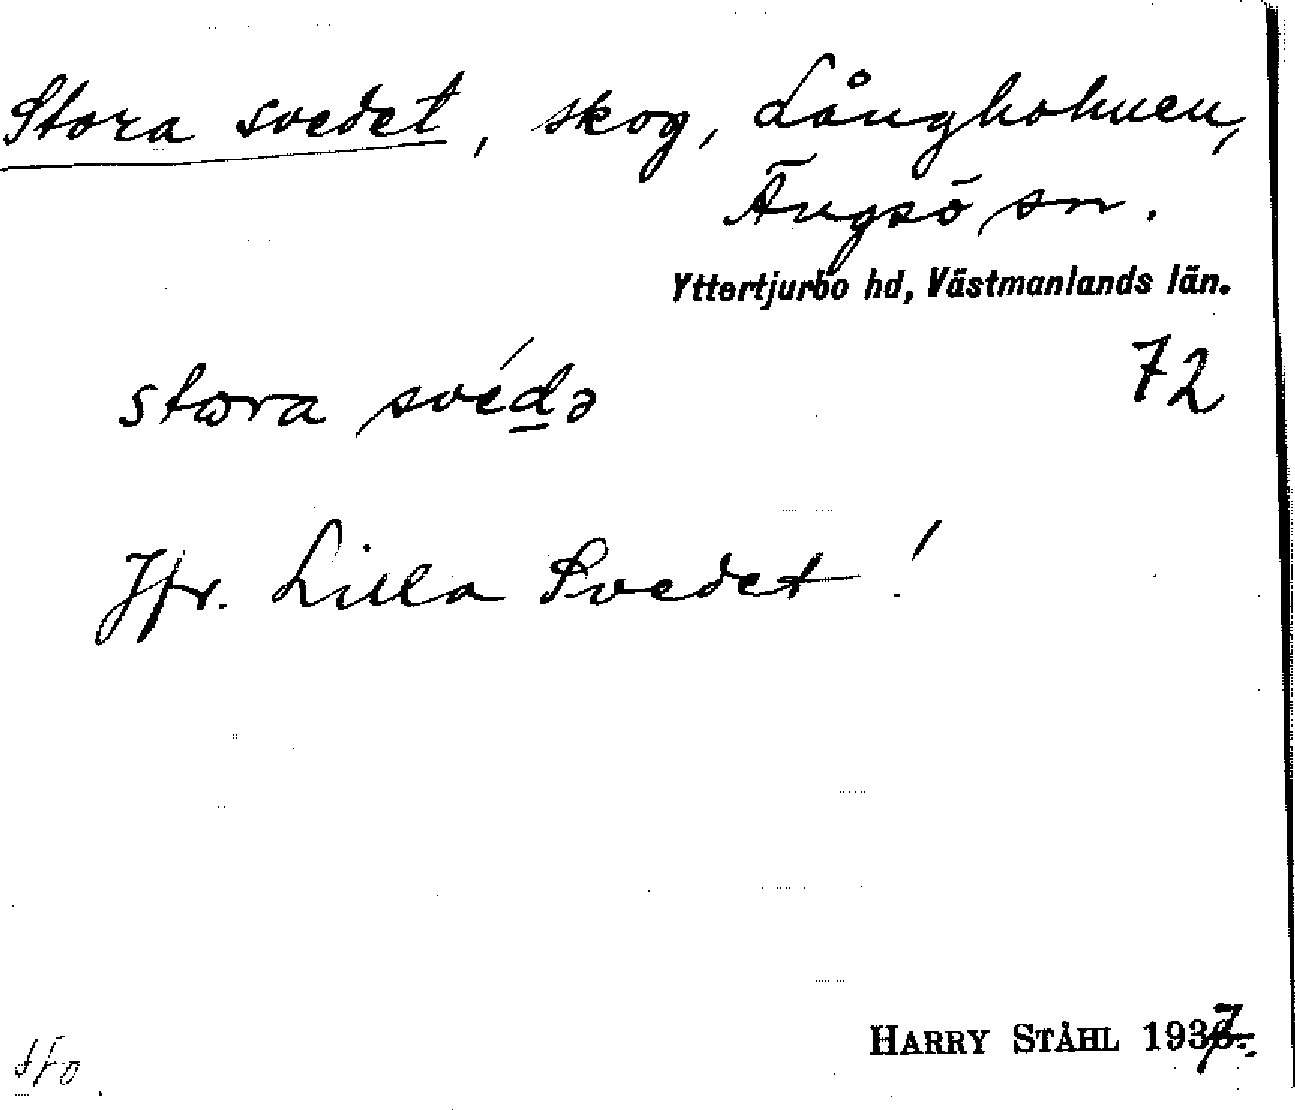 Stora svedet, skog, Långholmen,
Ängsö sn.
Yttertjurbo hd, Västmanlands län.
stωra své̱də
72
Jfr. Lilla Svedet!
HARRY STÅHL 1937.